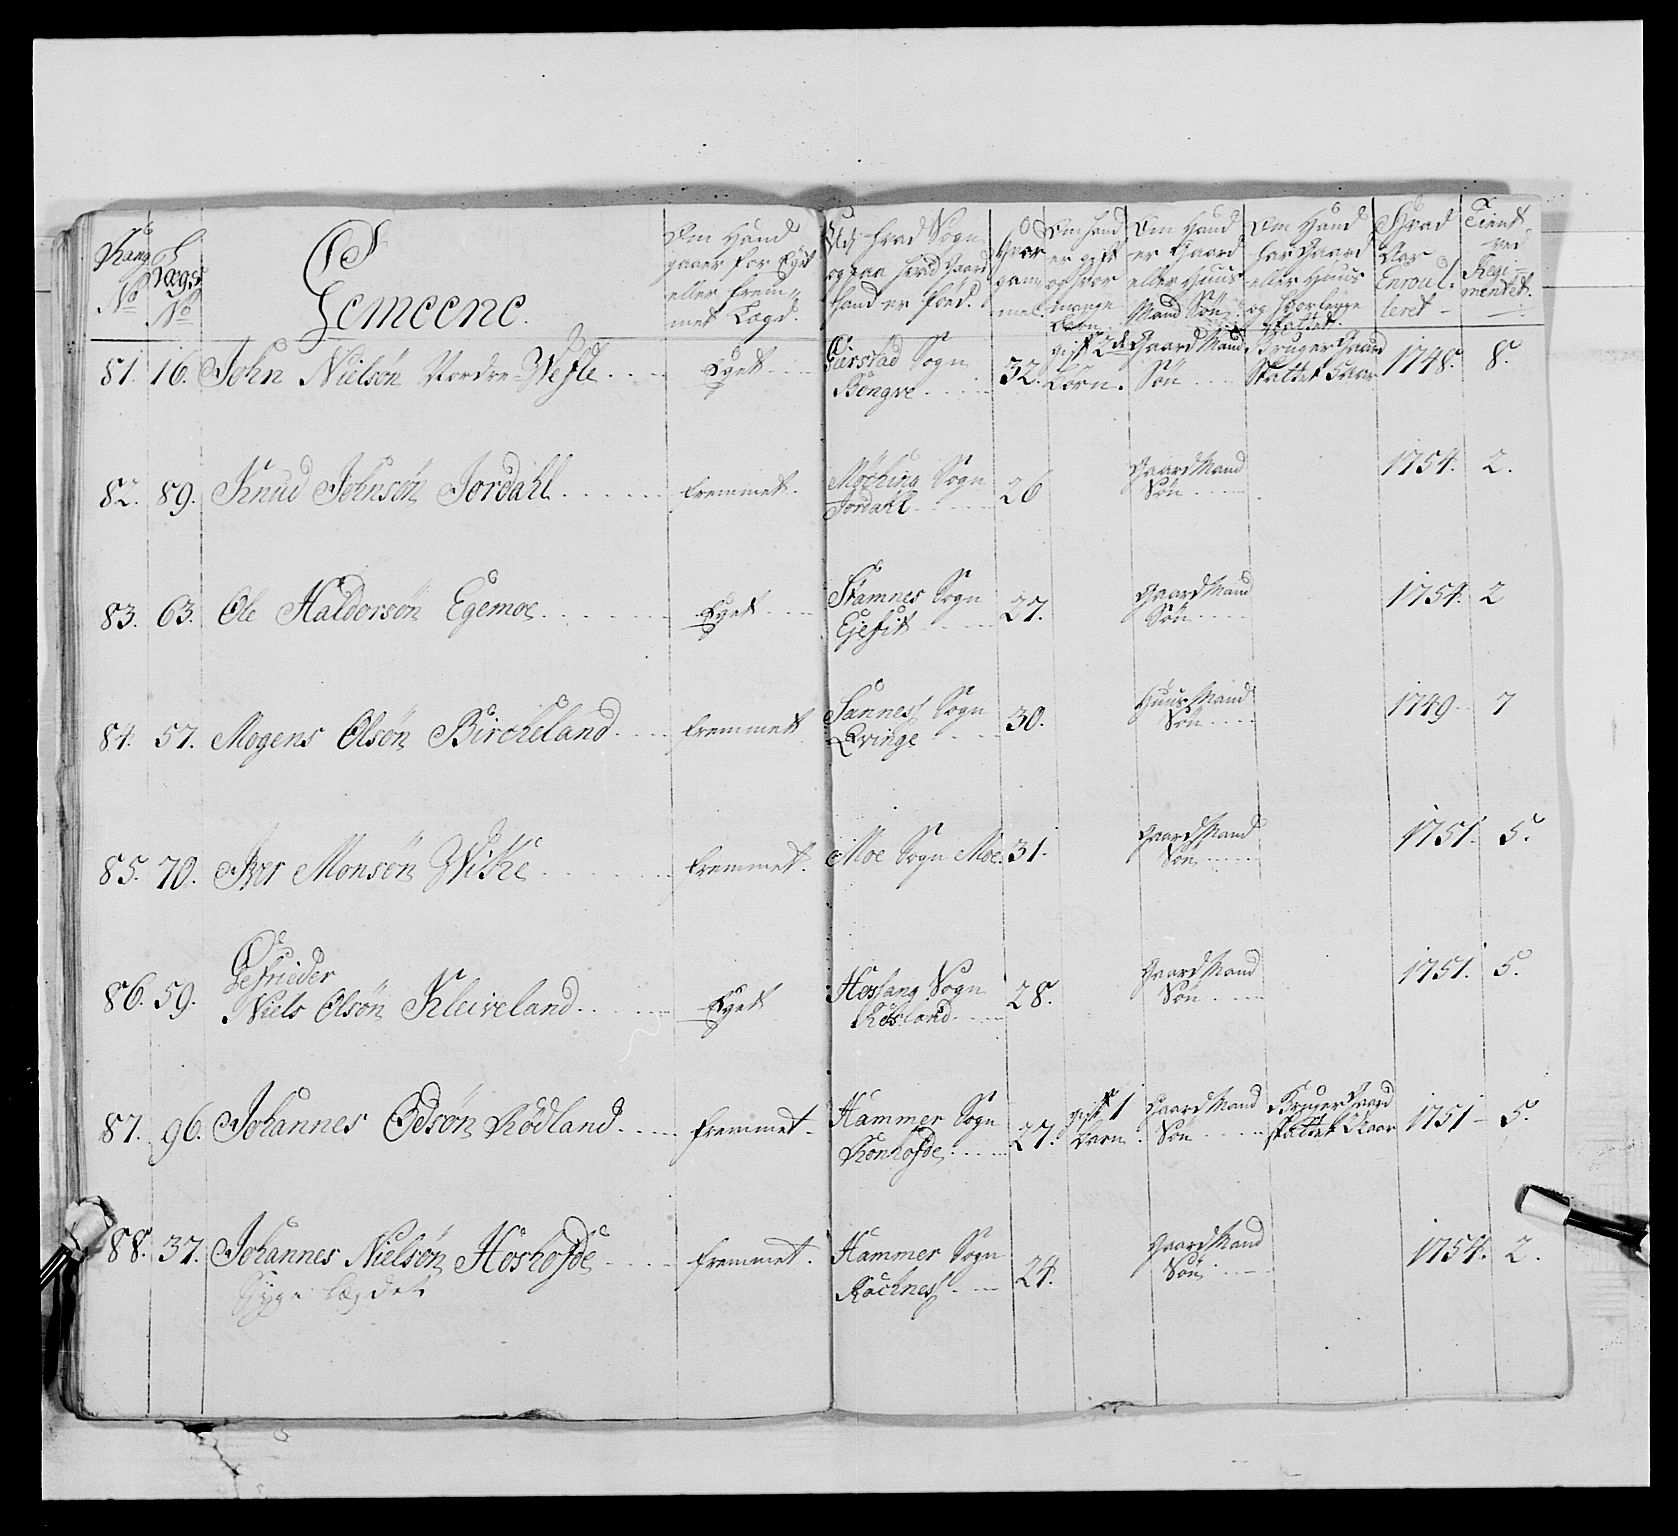 Rang No
Lægs No
Gemeene.
Om Hand gaaer for Eget eller frem- met Lægd.
Udj hvad Sogn og paa hvad Gaard hand er föed.
Hvor gam- mel
Om hand er gift og hvor mange Börn.
Om Hand er Gaard eller Huus Mand Sön
Om Hand har Gaard eller Huus og hvor lenge skattet.
Hvad Aar Enroul- leret
Tient ved Regi- mentet.
81. 16. John Nielsön Nordre-Wefle Eget Gierstad Sogn Bongve 32. gift 2de Börn. Gaard Mand Sön Bruger Gaard Skattet 5 aar 1748. 8.
82. 89. Knud Johnsön Jordahl fremmet. Möching Sogn Jordahl 26 Gaard Mand Sön 1754. 2.
83. 63. Ole Haldorsön Egemoe Eget Stamnes Sogn Ejefit 27. Gaard Mand Sön 1754. 2
84. 57. Mogens Olsön Bircheland fremmet Sannes Sogn Qvinge 30. Huus Mand Sön 1749. 7
85. 70. Iver Monsön Wike fremmet. Moe Sogn Moe. 31. Gaard Mand Sön 1751. 5.
Gefrieder
86. 59. Niels Olsön Kleiveland Eget Hosang Sogn Rosland 28. Gaard Mand Sön 1751. 5.
87. 96. Johannes Odsön Rödland fremmet Hammer Sogn Ronhofde 27. gift 1 Barn. Gaard Mand Sön Bruger Gaard skattet 2 Aar 1751 5.
88. 37. Johannes Nielsön Hoshofde fremmet. Hammer Sogn Rochnes 24. Gaard Mand Sön 1754. 2.
Lægdet